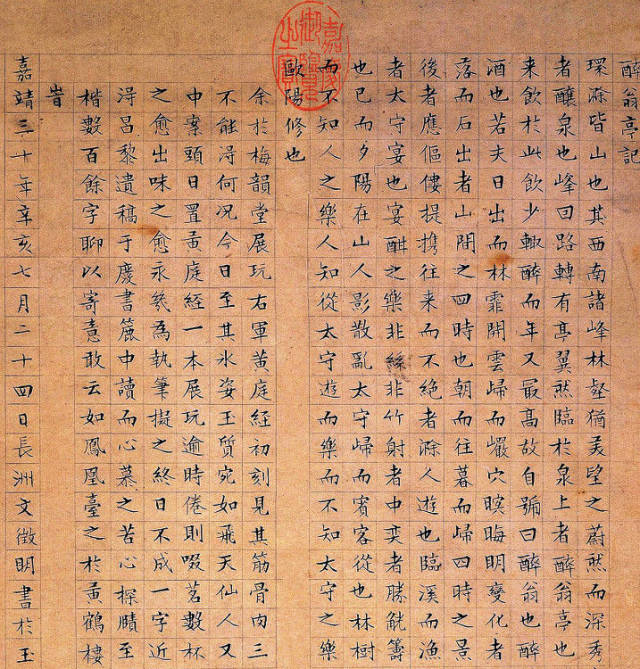 醉翁亭記
環滁皆山也其西南諸峰林壑猶羙望之蔚然而深秀
者釀泉也峰回路轉有亭翼然臨於泉上者醉翁亭也
来飲於此飲少輙醉而年又最髙故自號曰醉翁也醉
酒也若夫日出而林霏開雲歸而巖穴暝晦明變化者
落而石出者山間之四時也朝而往暮而歸四時之景
後者應傴僂提携往来而不絶者滁人遊也臨溪而漁
者太守宴也宴酣之樂非絲非竹射者中奕者勝觥籌
也已而夕陽在山人影散亂太守歸而賓客從也林樹
而不知人之樂人知從太守遊而樂而不知太守之樂
歐陽修也
余於梅韻堂展玩右軍黄庭經初刻見其筋骨肉三
不能淂何况今日至其氷姿玉質宛如飛天仙人又
中案頭日置黄庭經一本展玩逾時倦則啜茗數杯
之愈出味之愈永㡬為執筆擬之終日不成一字近
淂昌黎遺稿于慶書簏中讀而心慕之苦心探賾至
楷數百餘字聊以寄意敢云如鳳凰臺之於黄鶴樓
旹
嘉靖三十年辛亥七月二十四日長洲文徵明書於玉
嘉慶御覽之寶